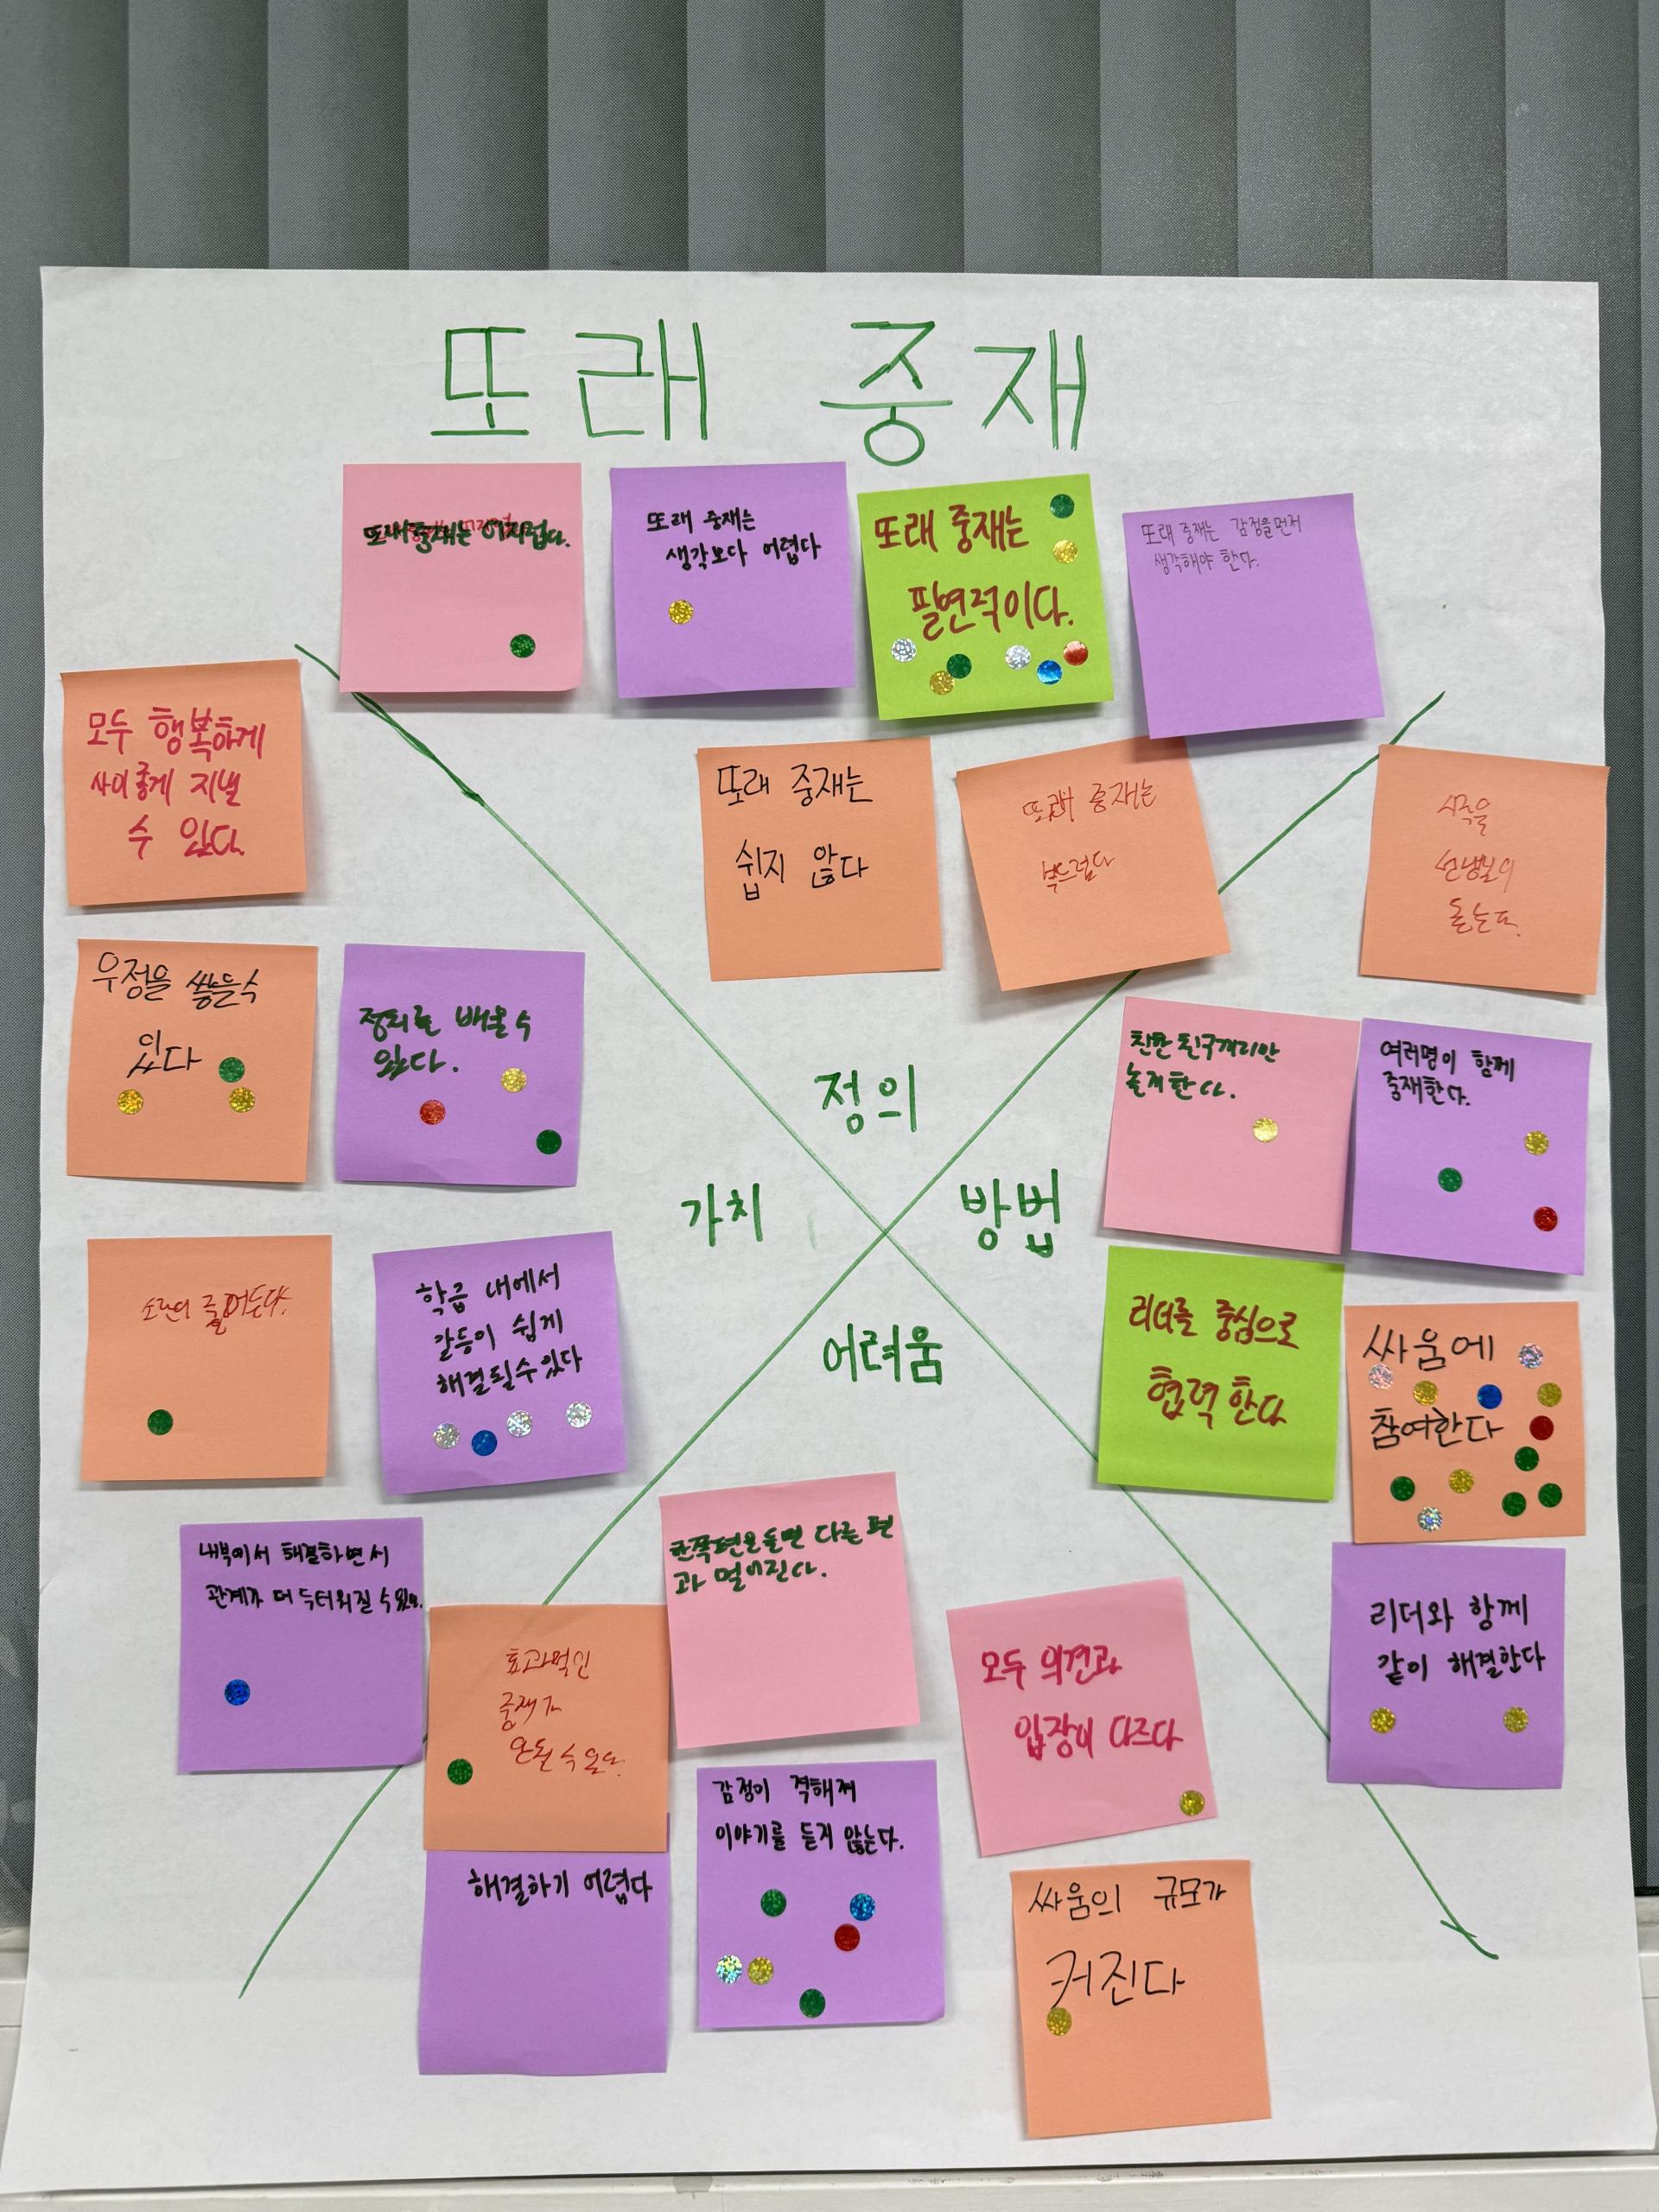 또래 중재
또래 중재는 어지럽다.
또래 중재는
생각보다 어렵다
또래 중재는
필연적이다.
또래 중재는 감정을 먼저
생각해야 한다.
모두 행복하게
사이좋게 지낼
수 있다.
또래 중재는
쉽지 않다
또래 중재는
부드럽다
선생님이
돕는다.
우정을 쌓을수
있다
정의를 배울 수
있다.
정의
친한 친구끼리만
놀게 한다.
여러명이 함께
중재한다.
가치
방법
어려움
소란이 줄어든다.
학급 내에서
갈등이 쉽게
해결될 수 있다
리더를 중심으로
협력한다
싸움에
참여한다
내부에서 해결하면서
관계가 더 두터워질 수 있다.
한쪽편을 들면 다른 편
과 멀어진다.
효과적인
중재가
안될 수 있다.
모두 의견과
입장이 다르다
리더와 함께
같이 해결한다
해결하기 어렵다
감정이 격해져
이야기를 듣지 않는다.
싸움의 규모가
커진다